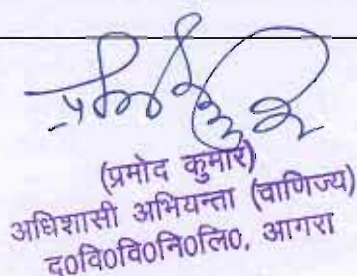 (प्रमोद कुमार)
अधिशासी अभियन्ता (वाणिज्य)
द0वि0वि0नि0लि0, आगरा